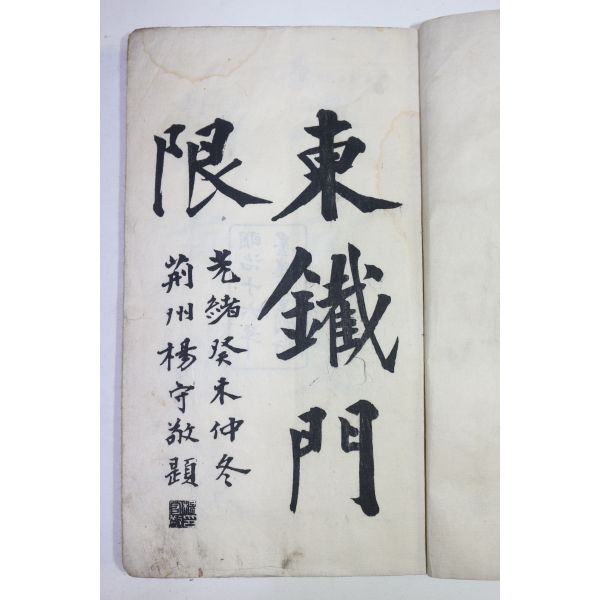 東鐵門
限
光緒癸未仲冬
荆州楊守敬題